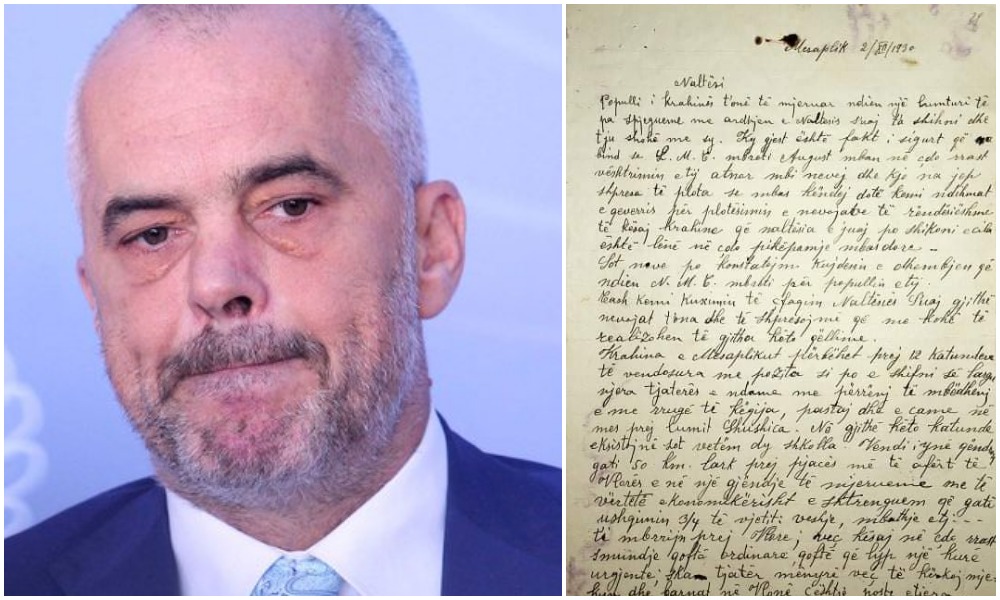 Mesaplik 2/XII/1930
Naltësi
Populli i krahinës t'onë të mjeruar ndien një lumturi të
pa spjegueme me ardhjen e Naltësis suaj ta shihni dhe
tju shohë me sy. Ky gjest është fakt i sigurt që na
bind se L. M. T. mbreti August mban në çdo rrast
vështrimin e tij atnor mbi nevej dhe kjo na jep
shpresa të plota se mbas këndej dotë kemi ndihmat
e geverris për plotësimin e nevojave të rëndësishme
të kësaj krahine që naltësia e juaj po shikoni e cila
është lënë në çdo pikëpamje mbasdore -
Sot neve po konstatojm kujdesin e dhembjen që
ndien N. M. T. mbreti për popullin e tij.
Cash kemi kuximin të faqim Naltësies Suaj gjithë
nevojat t'ona dhe të shpresojmë që me kohë të
realizohen të gjitha këto qëllime.
Krahina e Mesaplikut përbëhet prej 12 katundeve
të vendosura me pozita si po e shifni së larg
njera tjaterës e ndame me përrënj të mbëdhenj
e me rrugë të këqija, pastaj dhe e came në
mes prej lumit Shushica. Në gjithë këto katunde
eksistojnë sot vetëm dy shkolla. Vendi ynë gënde
gati 50 km. lark prej pjacës më të afërt të
Vlorës e në një gjëndje të mjerueme me të
vërtetë ekonomikërisht e shtrenguem që gati
ushqunin 3/4 të vjetit veshje, mbathje etj - - -
ti mbrrijn prej Vlore; veç kësaj në çdo rrast
smundje qoftë ordinare qoftë që lyp një kurë
urgjente, ska tjatër mënyrë veç të kërkoj mje
dhe barnat në Vlonë